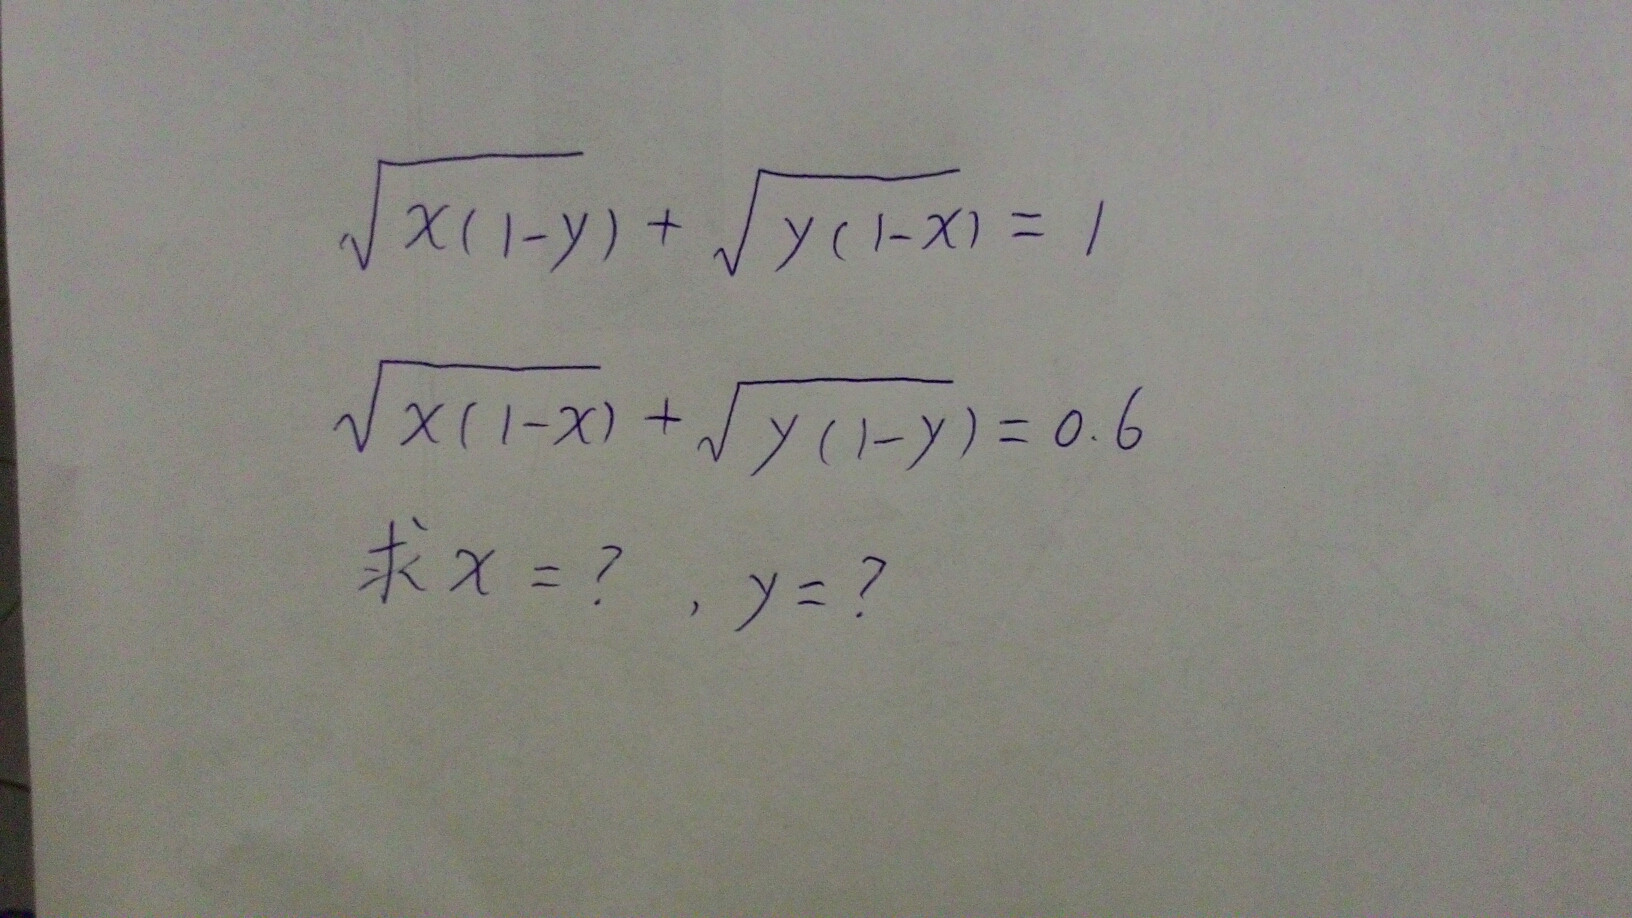 √x(1-y) + √y(1-x) = 1
√x(1-x) + √y(1-y) = 0.6
求 x = ? , y = ?